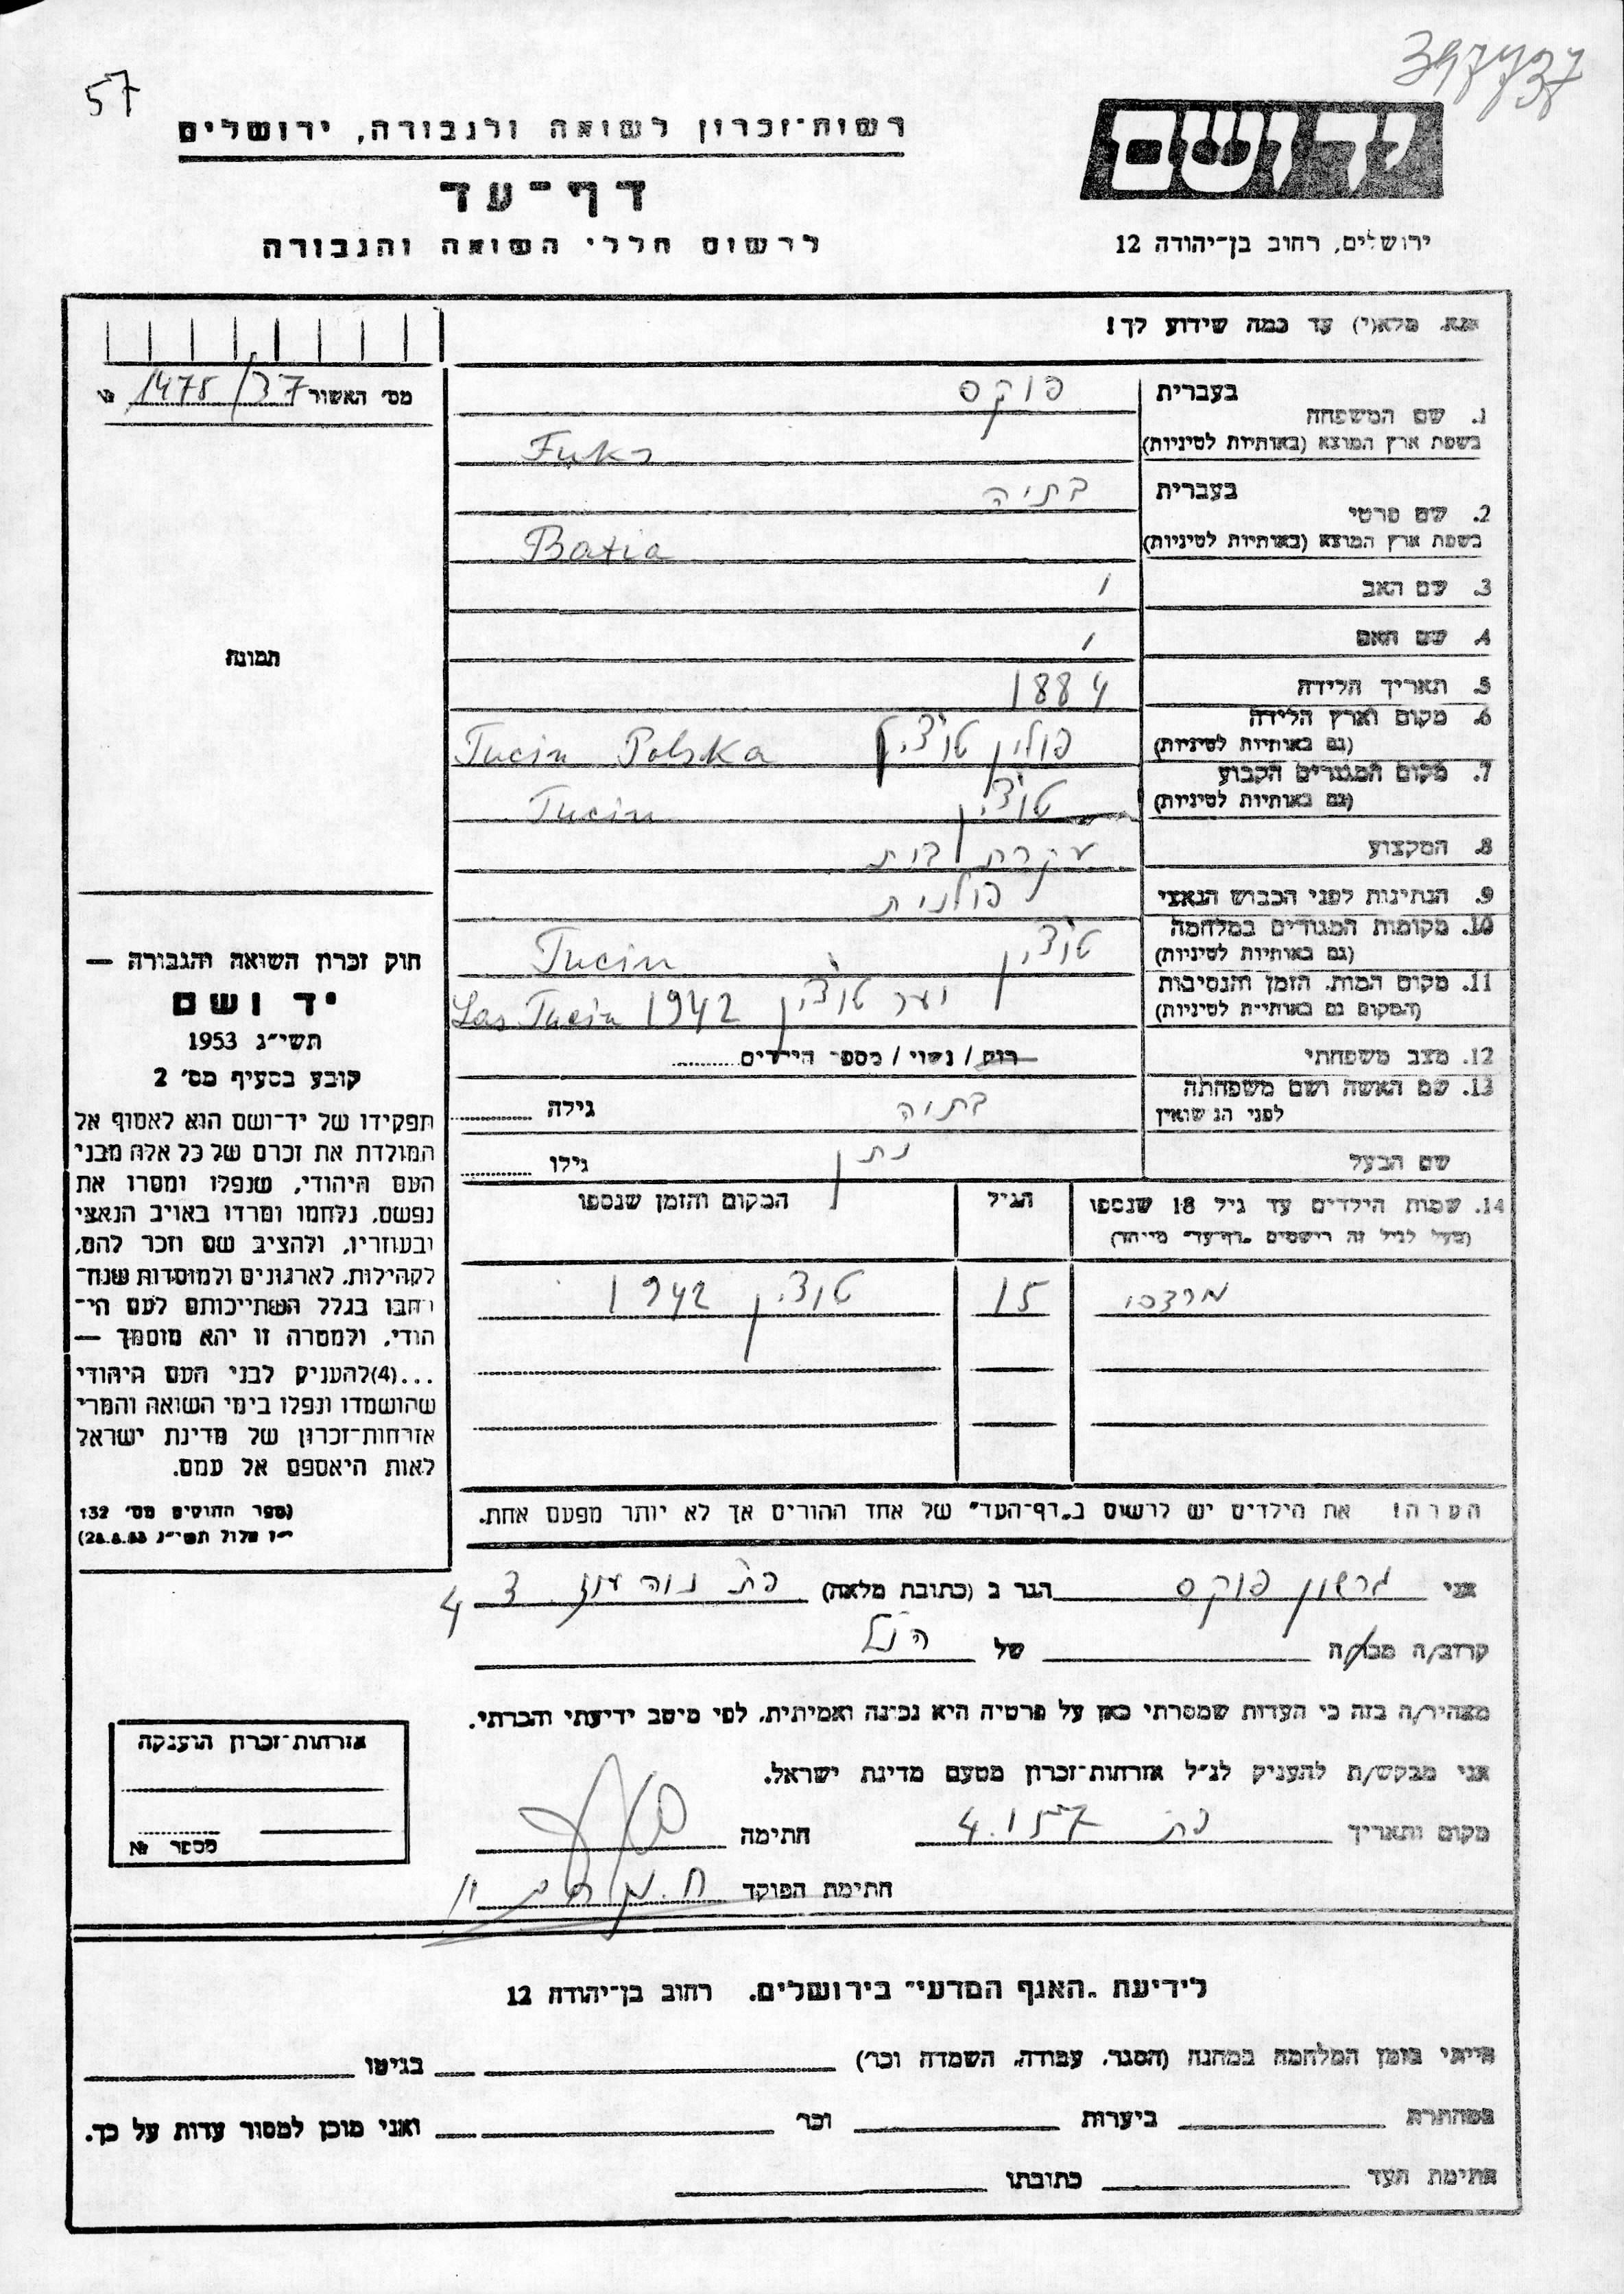 57
397737
רשות־זכרון לשואה ולגבורה, ירושלים
דף־עד
לרשום חללי השואה והגבורה
יד ושם
ירושלים, רחוב בן־יהודה 12
נא מלא(י) עד כמה שידוע לך!
מס׳ האשור 1478/37 №
תמונה
1. שם המשפחה בעברית פוקס
בשפת ארץ המוצא (באותיות לטיניות) Fuks
2. שם פרטי בעברית בתיה
בשפת ארץ המוצא (באותיות לטיניות) Batia
3. שם האב /
4. שם האם /
5. תאריך הלידה 1884
6. מקום וארץ הלידה (גם באותיות לטיניות) פולין טוצין Tucin Polska
7. מקום המגורים הקבוע (גם באותיות לטיניות) טוצין Tucin
8. המקצוע עקרת בית
9. הנתינות לפני הכבוש הנאצי פולנית
10. מקומות המגורים במלחמה (גם באותיות לטיניות) טוצין Tucin
11. מקום המות, הזמן והנסיבות (המקום גם באותיות לטיניות) יער טוצין 1942 Las Tucin
12. מצב משפחתי רווק / נשוי / מספר הילדים
13. שם האשה ושם משפחתה לפני הנישואין בתיה גילה
שם הבעל נתן גילו
14. שמות הילדים עד גיל 18 שנספו הגיל המקום והזמן שנספו
(מעל לגיל זה רושמים „דף־עד״ מיוחד)
מרדכי 15 טוצין 1942
הערה! את הילדים יש לרשום ב„דף־העד״ של אחד ההורים אך לא יותר מפעם אחת.
חוק זכרון השואה והגבורה —
יד ושם
תשי״ג 1953
קובע בסעיף מס׳ 2
תפקידו של יד־ושם הוא לאסוף אל
המולדת את זכרם של כל אלה מבני
העם היהודי, שנפלו ומסרו את
נפשם, נלחמו ומרדו באויב הנאצי
ובעוזריו, ולהציב שם וזכר להם,
לקהילות, לארגונים ולמוסדות שנח־
רבו בגלל השתייכותם לעם הי־
הודי, ולמטרה זו יהא מוסמך —
...(4) להעניק לבני העם היהודי
שהושמדו ונפלו בימי השואה והמרי
אזרחות־זכרון של מדינת ישראל
לאות היאספם אל עמם.
(ספר החוקים מס׳ 132
י״ז אלול תשי״ג 28.8.53)
אני גרשון פוקס הגר ב (כתובת מלאה) פת נוה עוז 3 4
קרוב/ה מכר/ה של הנ״ל
מצהיר/ה בזה כי העדות שמסרתי כאן על פרטיה היא נכונה ואמיתית, לפי מיטב ידיעתי והכרתי.
אני מבקש/ת להעניק לנ״ל אזרחות־זכרון מטעם מדינת ישראל.
מקום ותאריך פת 4.157 חתימה
חתימת הפוקד
אזרחות־זכרון הוענקה
מספר №
לידיעת „האגף המדעי״ בירושלים. רחוב בן־יהודה 12
הייתי בזמן המלחמה במחנה (הסגר, עבודה, השמדה וכו׳) בגיטו
במחתרת ביערות וכו׳ ואני מוכן למסור עדות על כך.
חתימת העד כתובתו